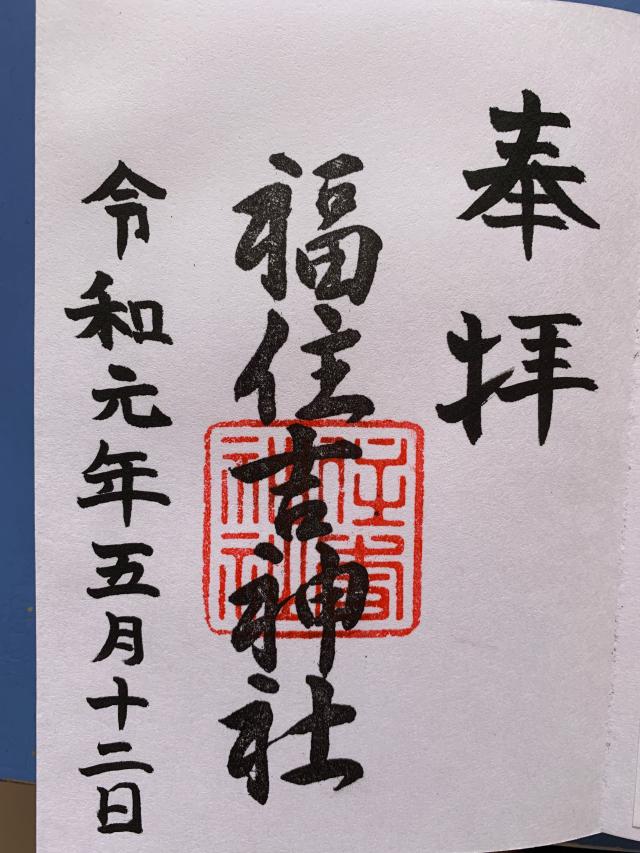 奉拝
福住吉神社
住吉神社
令和元年五月十二日